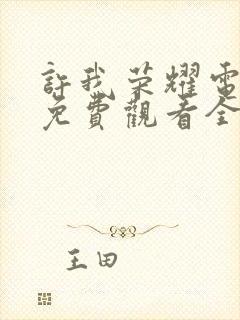 許我荣耀電
免費觀看全
王田